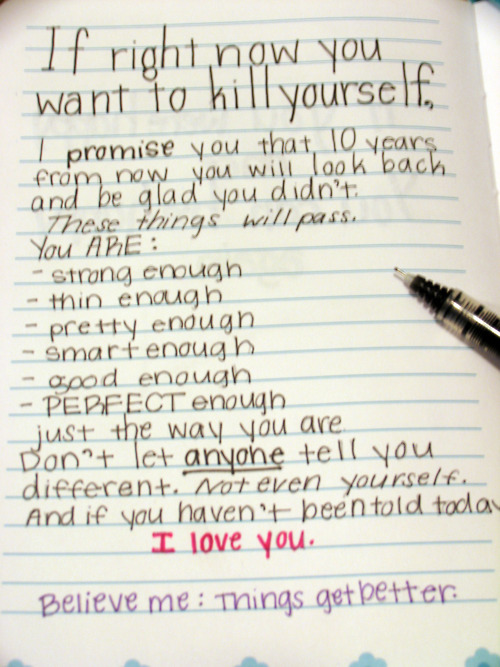 If right now you
want to kill yourself,
I promise you that 10 years
from now you will look back
and be glad you didn't.
These things will pass.
You ARE:
- strong enough
- thin enough
- pretty enough
- smart enough
- good enough
- PERFECT enough
just the way you are
Don't let anyone tell you
different. Not even yourself.
And if you haven't been told today
I love you.
Believe me: Things get better.